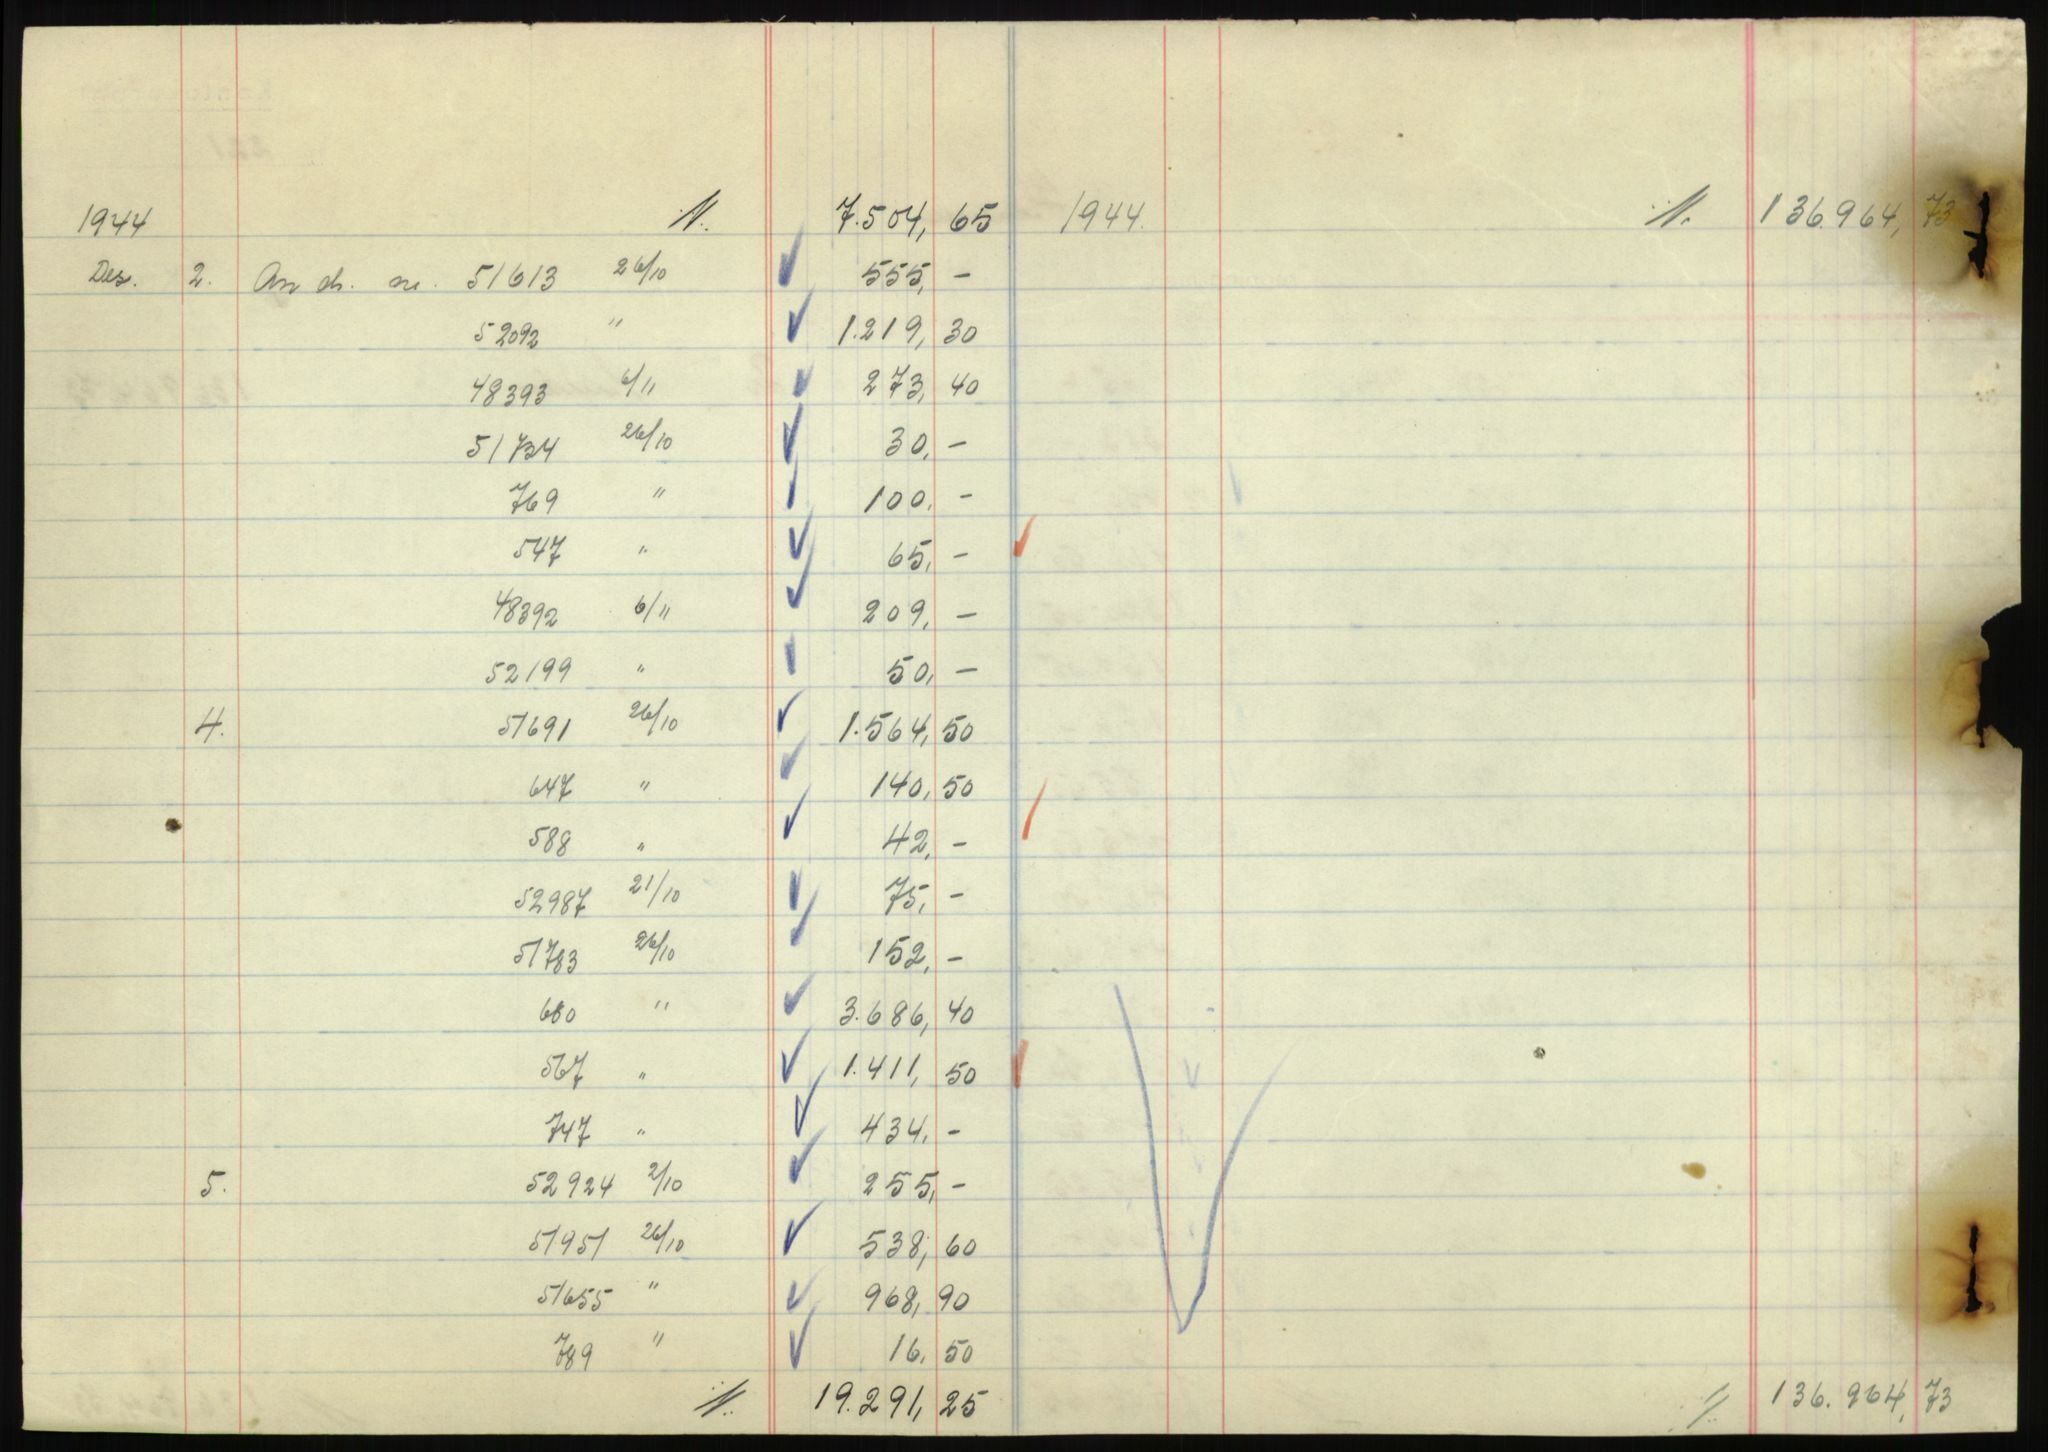 1944 ./. 7.504, 65 1944. ./. 136.964, 73
Des. 2. An ch. nr. 51613 26/10 555, -
52092 " 1.219, 30
48393 6/11 273, 40
51734 26/10 30, -
769 " 100, -
547 " 65, -
48392 6/11 209, -
52199 " 50, -
4. 51691 26/10 1.564, 50
647 " 140, 50
588 " 42, -
52987 21/10 75, -
51783 26/10 152, -
680 " 3.686, 40
567 " 1.411, 50
747 " 434, -
5. 52924 2/10 255, -
51951 26/10 538, 60
51655 " 968, 90
789 " 16, 50
./. 19.291, 25 ./. 136.964, 73